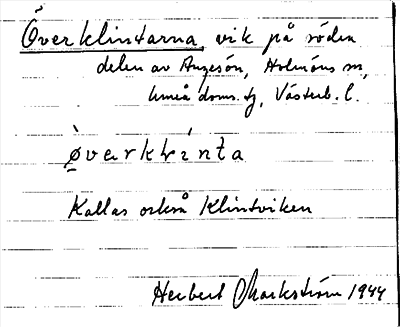 Överklintarna, vik på södra
delen av Ängesön, Holmöns sn,
Umeå doms. tg, Västerb. l.
ø̀verklínta
Kallas också Klintviken
Herbert Markström 1944